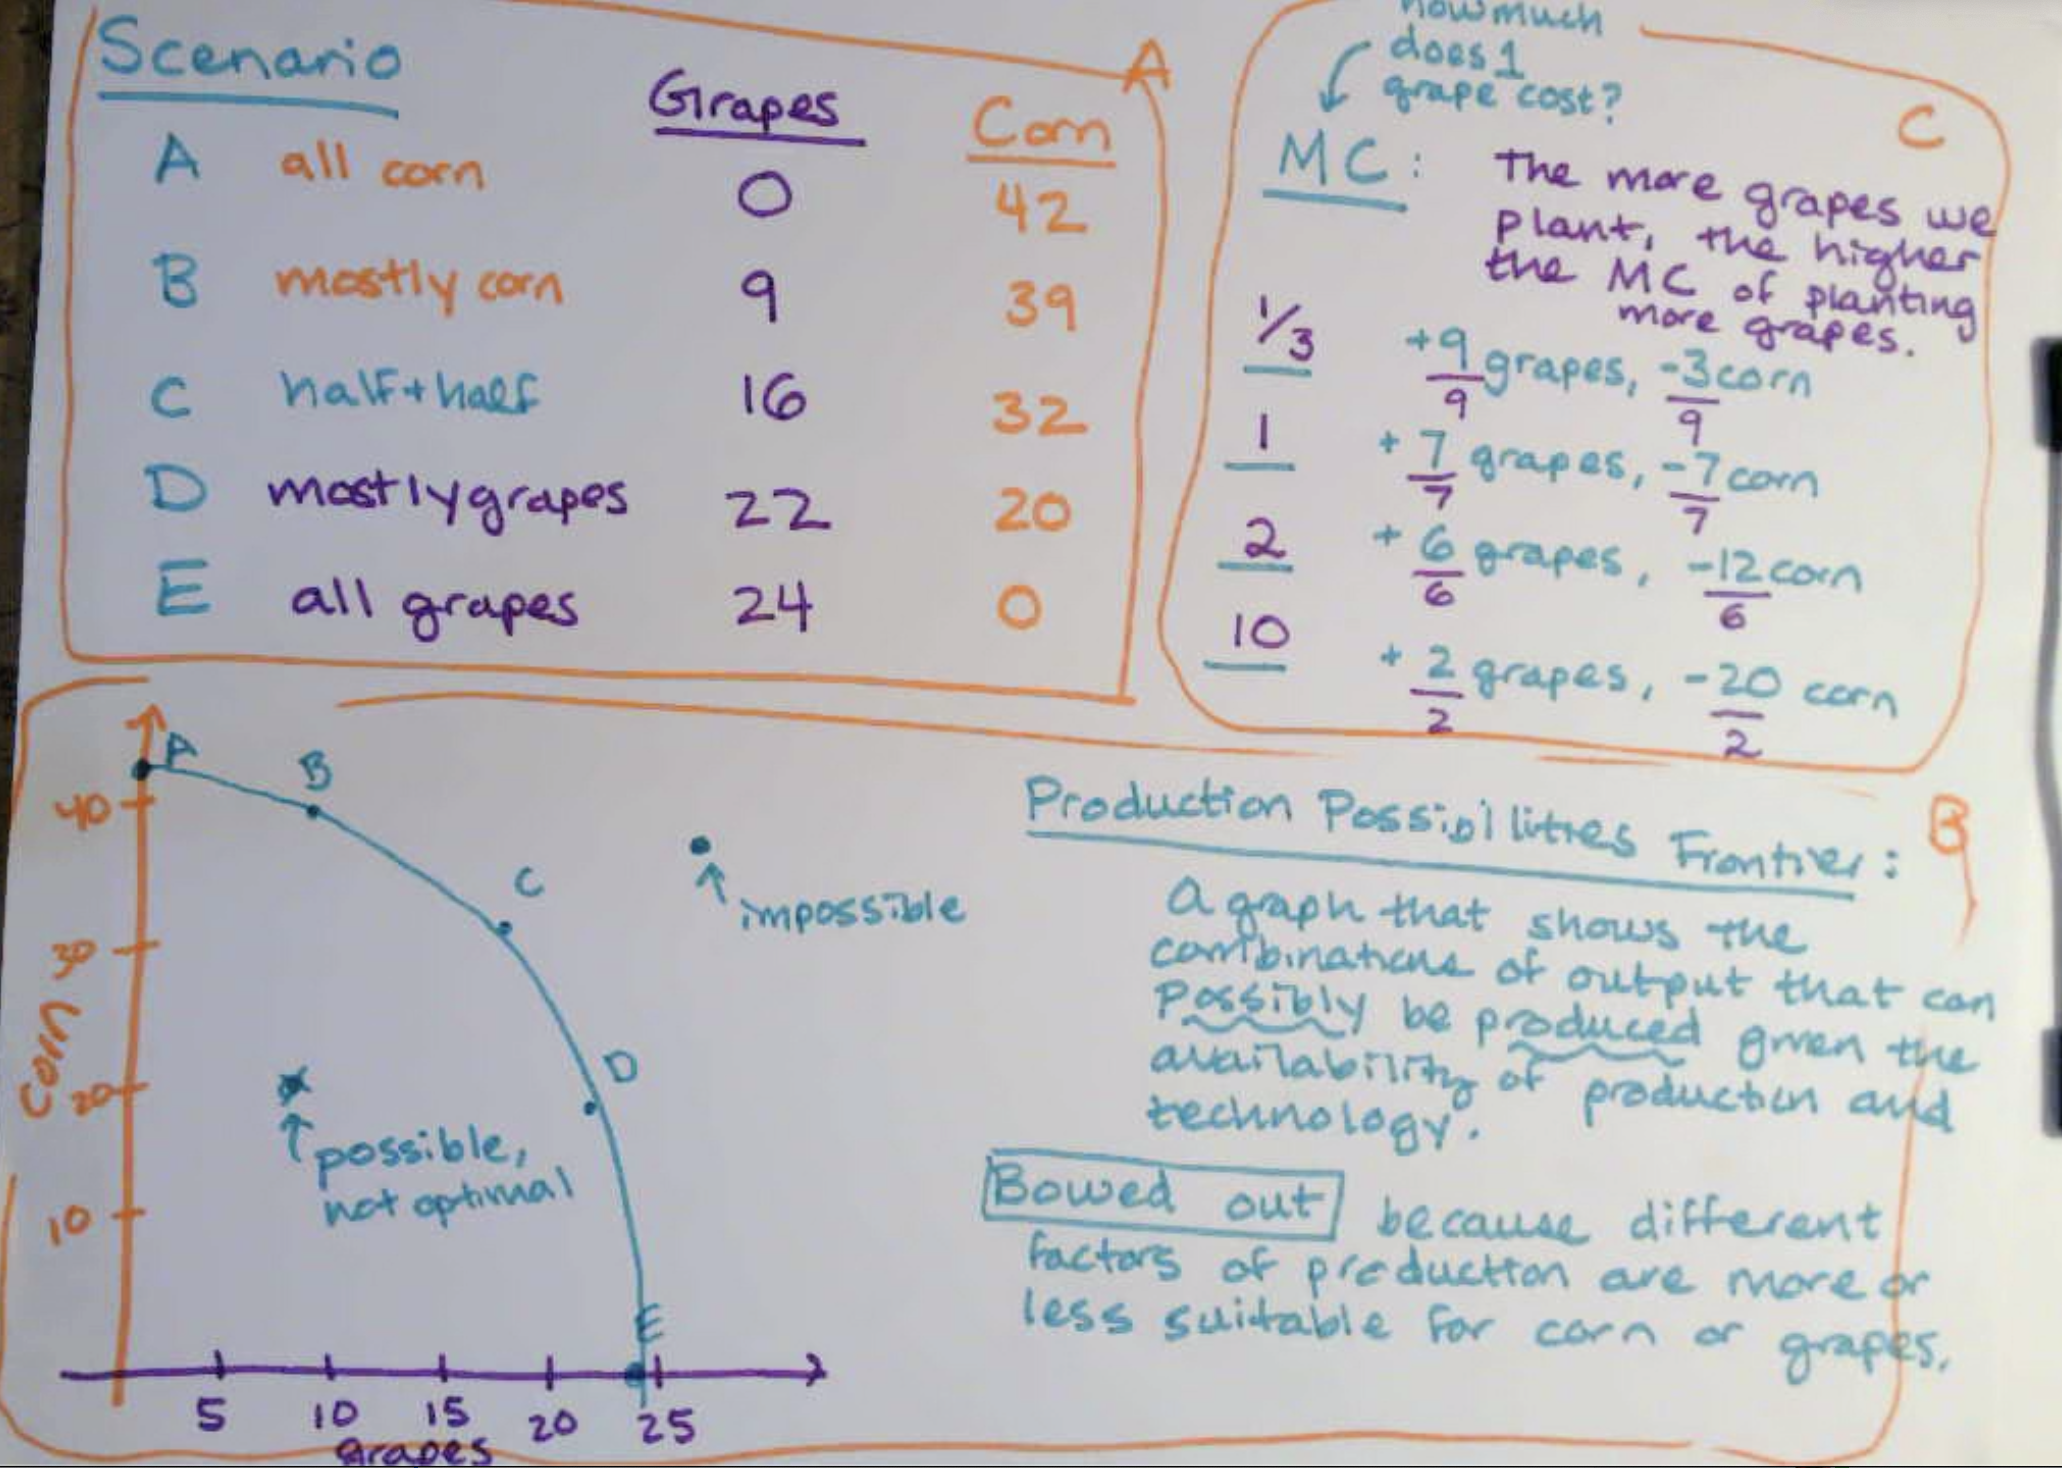 Scenario
Grapes
Corn
A all corn 0 42
B mostly corn 9 39
C half+half 16 32
D mostly grapes 22 20
E all grapes 24 0
A
how much
does 1
grape cost?
C
MC: The more grapes we
plant, the higher
the MC of planting
more grapes.
1/3 +9/9 grapes, -3/9 corn
1 +7/7 grapes, -7/7 corn
2 +6/6 grapes, -12/6 corn
10 +2/2 grapes, -20/2 corn
A
B
C
D
E
40
30
20
10
Corn
impossible
possible,
not optimal
5 10 15 20 25
Grapes
B
Production Possibilities Frontier:
A graph that shows the
combinations of output that can
possibly be produced given the
availability of production and
technology.
Bowed out because different
factors of production are more or
less suitable for corn or grapes.